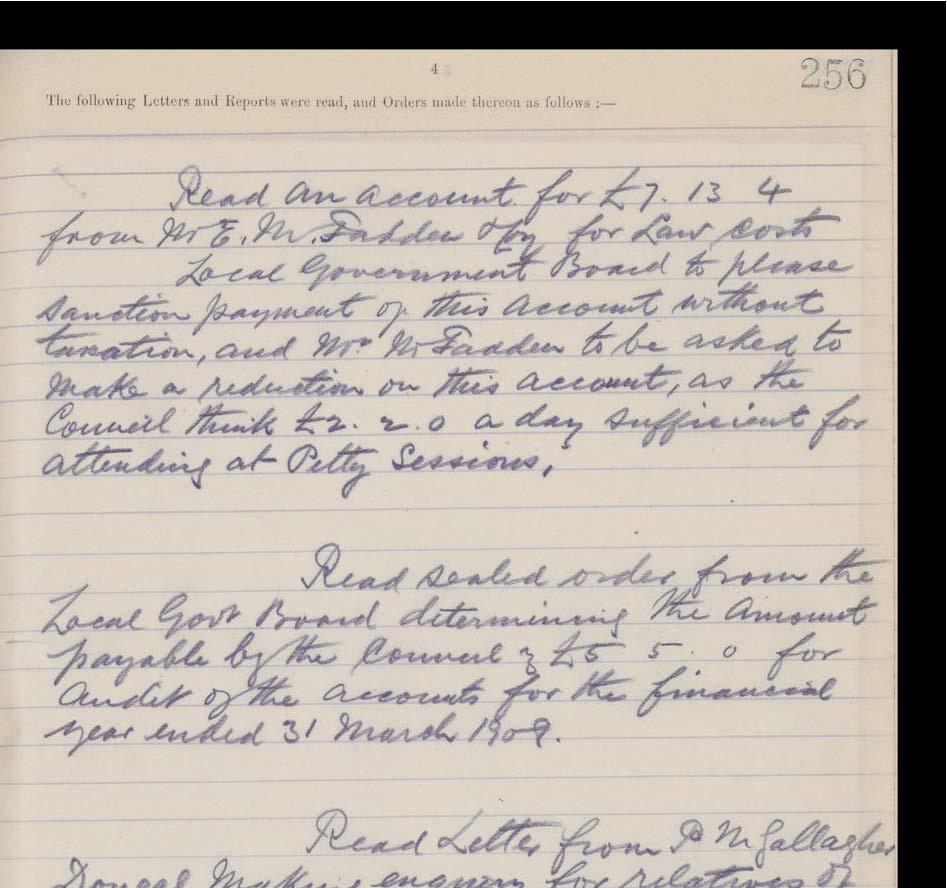 4
256
The following Letters and Reports were read, and Orders made thereon as follows :—
Read an account for £7. 13 4
from Mr E. McFadden for Law Costs
Local Government Board to please
sanction payment of this account without
taxation, and Mr. McFadden to be asked to
make a reduction on this account, as the
Council think £2. 2. 0 a day sufficient for
attending at Petty Sessions.
Read sealed order from the
Local Govt Board determining the amount
payable by the Council £5 5. 0 for
audit of the accounts for the financial
year ended 31 March 1909.
Read Letter from P M Gallagher
Donegal Making enquiry for relatives of